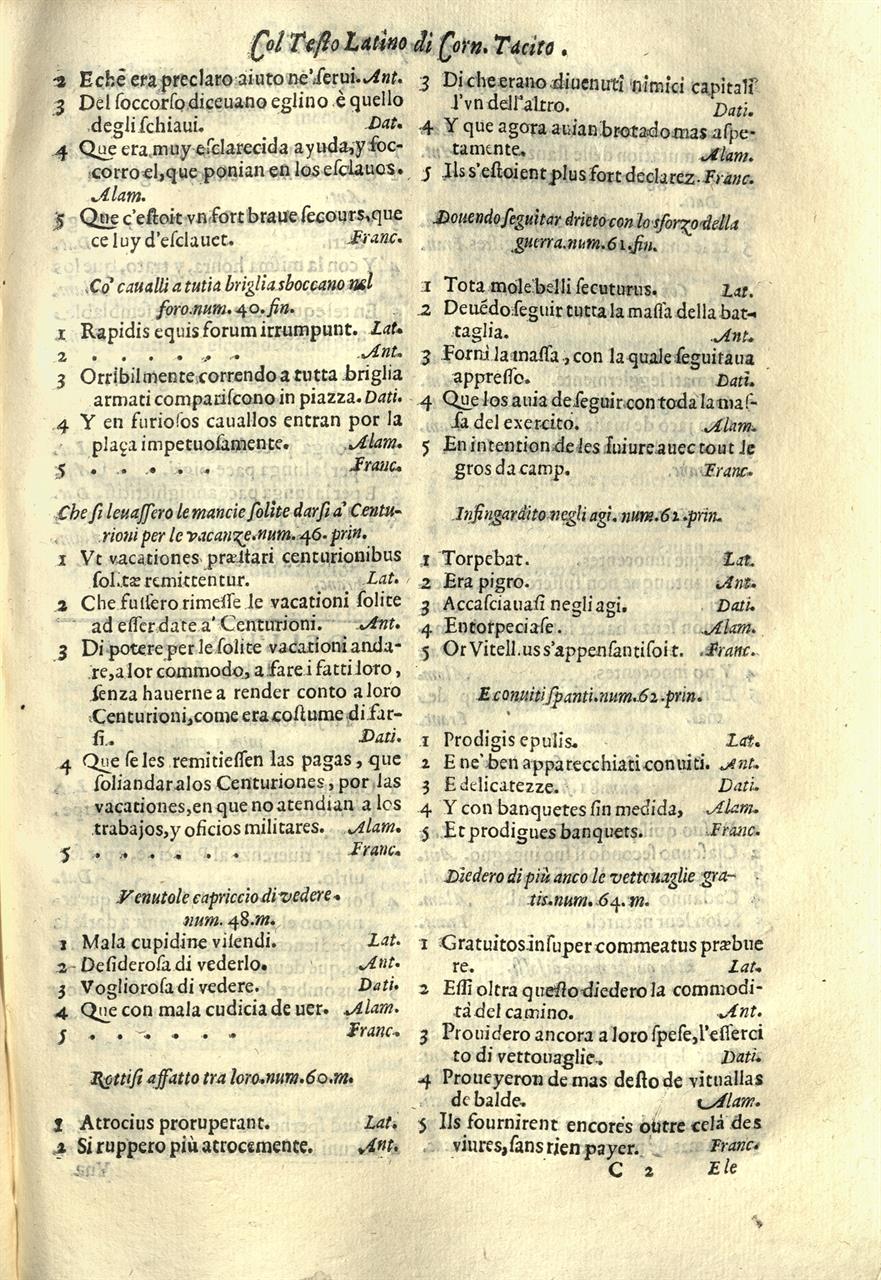 Col Teſto Latino di Corn. Tacito.
2 E chē era preclaro aiuto ne' ſerui. Ant.
3 Del ſoccorſo diceuano eglino è quello
degli ſchiaui. Dat.
4 Que era muy eſclarecida ayuda, y ſoc-
corro el, que ponian en los eſclauos.
Alam.
5 Que c'eſtoit vn fort braue ſecours, que
ce luy d'eſclauet. Franc.
Co' caualli a tutta briglia sboccano nel
foro. num. 40. fin.
1 Rapidis equis forum irrumpunt. Lat.
2 . . . . . . Ant.
3 Orribilmente correndo a tutta briglia
armati compariſcono in piazza. Dati.
4 Y en furioſos cauallos entran por la
plaça impetuoſamente. Alam.
5 . . . . . Franc.
Che ſi leuaſſero le mancie ſolite darſi a' Centu-
rioni per le vacanze. num. 46. prin.
1 Vt vacationes præſtari centurionibus
ſolitæ remittentur. Lat.
2 Che fuſſero rimeſſe le vacationi ſolite
ad eſſer date a' Centurioni. Ant.
3 Di potere per le ſolite vacationi anda-
re, a lor commodo, a fare i fatti loro,
ſenza hauerne a render conto a loro
Centurioni, come era coſtume di far-
ſi. Dati.
4 Que ſe les remitieſſen las pagas, que
ſolian dar alos Centuriones, por las
vacationes, en que no atendian a los
trabajos, y oficios militares. Alam.
5 . . . . . . Franc.
Venutole capriccio di vedere.
num. 48. m.
1 Mala cupidine viſendi. Lat.
2 Deſideroſa di vederlo. Ant.
3 Voglioroſa di vedere. Dati.
4 Que con mala cudicia de uer. Alam.
5 . . . . . . Franc.
Rottiſi affatto tra loro. num. 60. m.
1 Atrocius proruperant. Lat.
2 Si ruppero più atrocemente. Ant.
3 Di che erano diuenuti nimici capitali
l'vn dell'altro. Dati.
4 Y que agora auian brotado mas aſpe-
tamente. Alam.
5 Ils s'eſtoient plus fort declarez. Franc.
Douendo ſeguitar drieto con lo sforzo della
guerra. num. 61. fin.
1 Tota mole belli ſecuturus. Lat.
2 Deuédo ſeguir tutta la maſſa della bat-
taglia. Ant.
3 Fornì la maſſa, con la quale ſeguitaua
appreſſo. Dati.
4 Que los auia de ſeguir con toda la maſ-
ſa del exercito. Alam.
5 En intention de les ſuiure auec tout le
gros da camp. Franc.
Infingardito negli agi. num. 62. prin.
1 Torpebat. Lat.
2 Era pigro. Ant.
3 Accaſciauaſi negli agi. Dati.
4 Entorpeciaſe. Alam.
5 Or Vitell.us s'appensantiſoit. Franc.
E conuiti ſpanti. num. 62. prin.
1 Prodigis epulis. Lat.
2 E ne' ben apparecchiati conuiti. Ant.
3 E delicatezze. Dati.
4 Y con banquetes ſin medida, Alam.
5 Et prodigues banquets. Franc.
Diedero di più anco le vettouaglie gra-
tis. num. 64. m.
1 Gratuitos inſuper commeatus præbue
re. Lat.
2 Eſſi oltra queſto diedero la commodi-
tà del camino. Ant.
3 Prouidero ancora a loro ſpeſe, l'eſſerci
to di vettouaglie. Dati.
4 Proueyeron de mas deſto de vituallas
de balde. Alam.
5 Ils fournirent encores outre celà des
viures, ſans rien payer. Franc.
C 2 E le